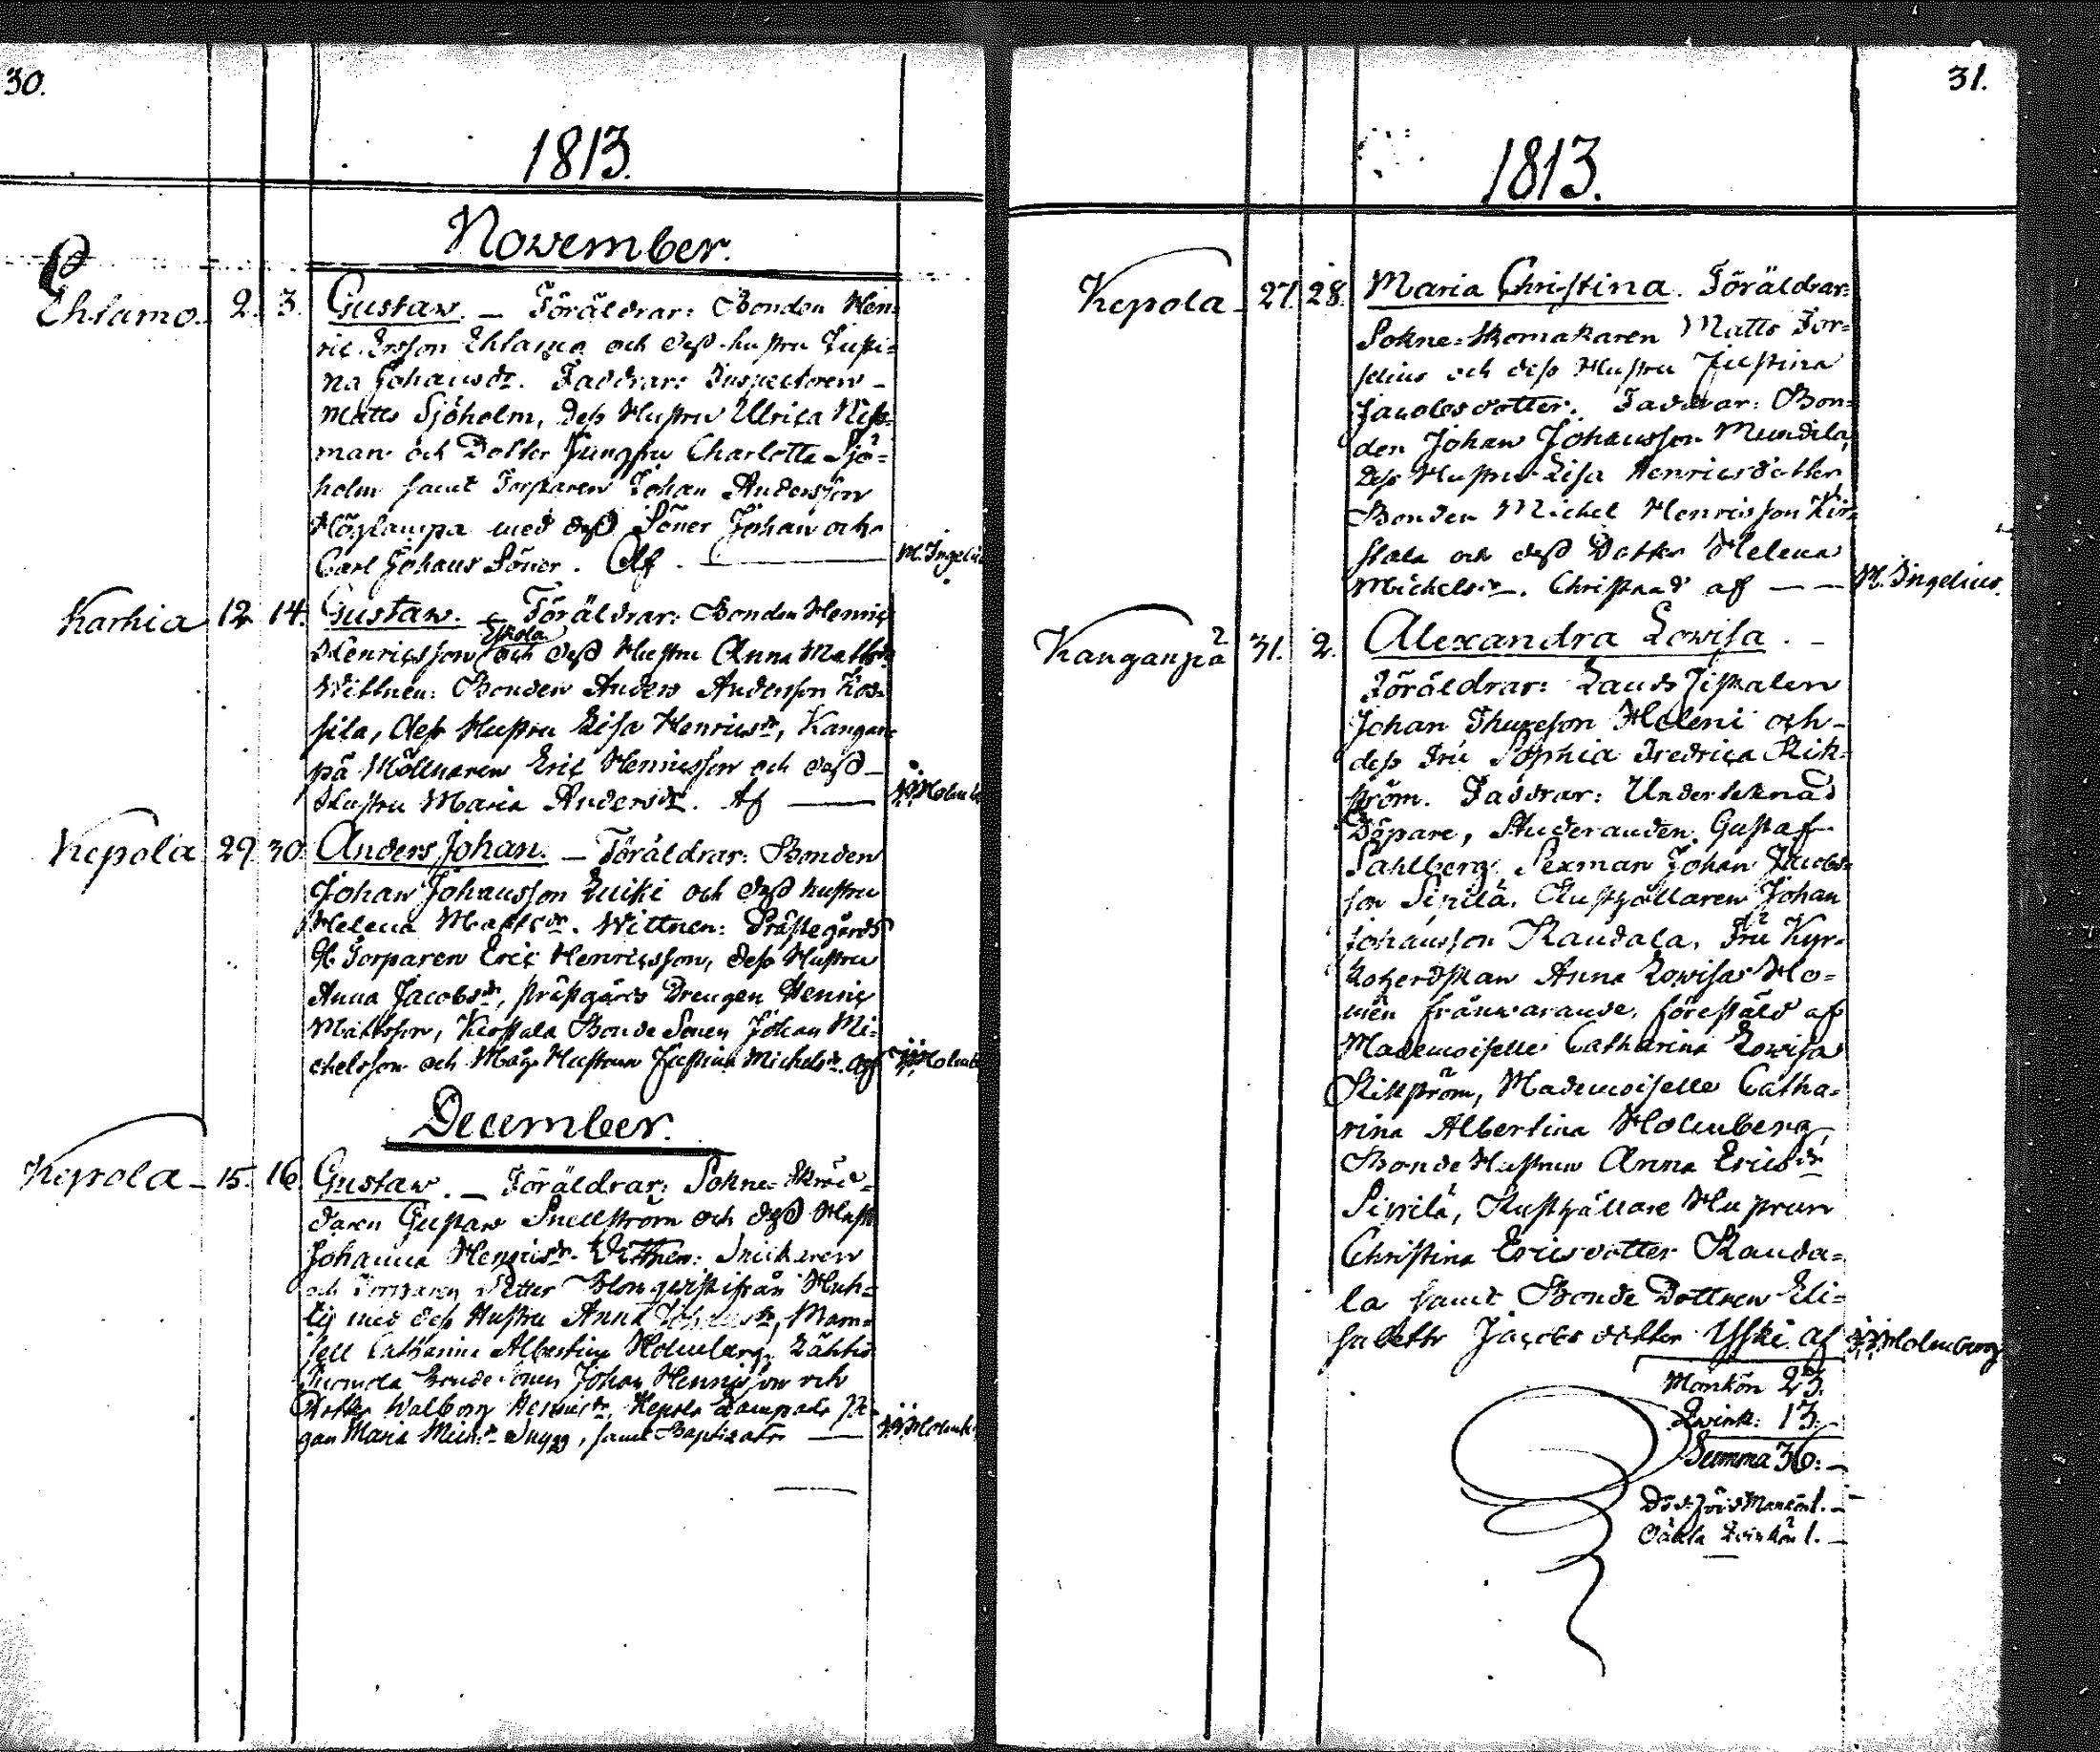 30.
1813.
November.
Ehtamo. 2. 3. Gustaw. — Föräldrar: Bonden Hen=
ric Ersson Ehtamo och dess hustru Justi=
na Johansdr. Faddrar: Inspectoren
Matts Sjöholm, dess Hustru Ulrica
man och Dotter Jungfru Charlotta Sjö=
holm samt Torparen Johan Andersson
Höglampa med dess Söner Johan och
Carl Johans Söner. Af — M. Ingelius
Karhia 12 14. Gustaw. — Föräldrar: Bonden Henric
Eskola
Henricsson och dess Hustru Anna Mattsdr
Wittnen: Bonden Anders Andersson
sila, dess Hustru Lisa Henricsdr, Kangan=
pä Möllnaren Eric Henricsson och dess
Hustru Maria Andersdr. Af — Holmb
Kepola 29. 30. Anders Johan. — Föräldrar: Bonden
Johan Johansson Luiki och dess hustru
Helena Mattsdr. Wittnen: Prästegårds
Torparen Eric Henricsson, dess Hustru
Anna Jacobsdr, prästgårds Drengen Henric
Mattsson, Kirstala Bonde Sonen Johan Mi=
chelsson och Måg Hustrun Justina Michelsdr. Af Holmb
December.
Kepola — 15. 16. Gustaw. — Föräldrar: Sokne Skräd=
daren Gustaw Snellström och dess Hustr
Johanna Henricsdr. Wittnen: Snickaren
och Torparen Petter Blomqwist ifrån Huh=
tij med dess Hustru Anna Johansdr, Mam=
sell Catharina Albertina Holmberg,
Bonde Sonen Johan Henricsson och
Dotter Walborg Henricsdr, Kepola
gan Maria Mich.dr samt — Holmb
31.
1813.
Kepola — 27. 28. Maria Christina. Föräldrar:
Sokne=Skomakaren Matts For=
selius och dess Hustru Justina
Jacobsdotter. Faddrar: Bon=
den Johan Johansson Mundila,
dess Hustru Lisa Henricsdotter
Bonden Michel Henricsson Kir=
stala och dess Dotter Helena
Michelsdr. Christnad af — — M. Ingelius.
Kanganpä 31. 2. Alexandra Lowisa. —
Föräldrar: Lands Fiskalen
Johan Thureson Heleni och
dess Fru Sophia Fredrica Rik=
ström. Faddrar: Undertecknad
Döpare, Studeranden Gustaf
Sahlberg, Sexman Johan Jacobs=
son Sipilä, Rusthållaren Johan
Johansson Raudala, Fru Kyr=
koherdskan Anna Lowisa Ho=
lmén frånwarande, förestäld af
Mademoiselle Catharina Lowisa
Rikström, Mademoiselle Catha=
rina Albertina Holmberg,
Bonde Hustrun Anna Ericsdr
Sipilä, Rusthållare Hustrun
Christina Ericsdotter Rauda=
la samt Bonde Dottren Eli=
sabeth Jacobs dotter Yski. af Holmberg
Mankön 23.
Qwink: 13.
Summa 36: —
Död. föds Mankön 1. —
Oäkta Qvinkön 1. —